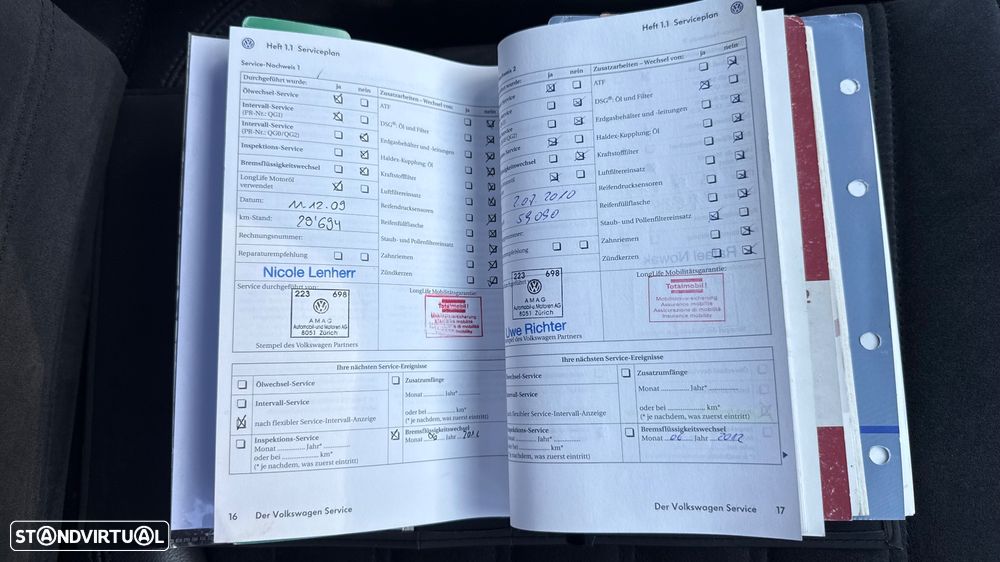 Heft 1.1 Serviceplan
Service-Nachweis 1
Durchgeführt wurde: ja nein
Ölwechsel-Service
Intervall-Service
(PR-Nr.: QG1)
Intervall-Service
(PR-Nr.: QG0/QG2)
Inspektions-Service
Bremsflüssigkeitswechsel
LongLife Motoröl
verwendet
Datum: 11.12.09
km-Stand: 29'694
Rechnungsnummer:
Reparaturempfehlung
Zusatzarbeiten – Wechsel von: ja nein
ATF
DSG®: Öl und Filter
Erdgasbehälter und -leitungen
Haldex-Kupplung: Öl
Kraftstofffilter
Luftfiltereinsatz
Reifendrucksensoren
Reifenfüllflasche
Staub- und Pollenfiltereinsatz
Zahnriemen
Zündkerzen
Nicole Lenherr
Service durchgeführt von:
223 698
AMAG
Automobil-und Motoren AG
8051 Zürich
Stempel des Volkswagen Partners
LongLife Mobilitätsgarantie:
Totalmobil!
Mobilitätsversicherung
Assurance mobilité
Assicurazione di mobilità
Insurance mobility
Ihre nächsten Service-Ereignisse
Ölwechsel-Service
Intervall-Service
nach flexibler Service-Intervall-Anzeige
Inspektions-Service
Monat Jahr*
oder bei km*
(* je nachdem, was zuerst eintritt)
Zusatzumfänge
Monat Jahr*
oder bei km*
(* je nachdem, was zuerst eintritt)
Bremsflüssigkeitswechsel
Monat 06 Jahr 2012
16 Der Volkswagen Service
Heft 1.1 Serviceplan
ja nein
Zusatzarbeiten – Wechsel von: ja nein
ATF
DSG®: Öl und Filter
Erdgasbehälter und -leitungen
Haldex-Kupplung: Öl
Kraftstofffilter
Luftfiltereinsatz
Reifendrucksensoren
Reifenfüllflasche
Staub- und Pollenfiltereinsatz
Zahnriemen
Zündkerzen
2.07.2010
59090
223 698
AMAG
Automobil-u. Motoren AG
8051 Zürich
Uwe Richter
des Volkswagen Partners
LongLife Mobilitätsgarantie:
Totalmobil!
Mobilitätsversicherung
Assurance mobilité
Assicurazione di mobilità
Insurance mobility
Ihre nächsten Service-Ereignisse
flexibler Service-Intervall-Anzeige
Jahr*
km*
nachdem, was zuerst eintritt)
Zusatzumfänge
Monat Jahr*
oder bei km*
(* je nachdem, was zuerst eintritt)
Bremsflüssigkeitswechsel
Monat 06 Jahr 2012
Der Volkswagen Service 17
STANDVIRTUAL